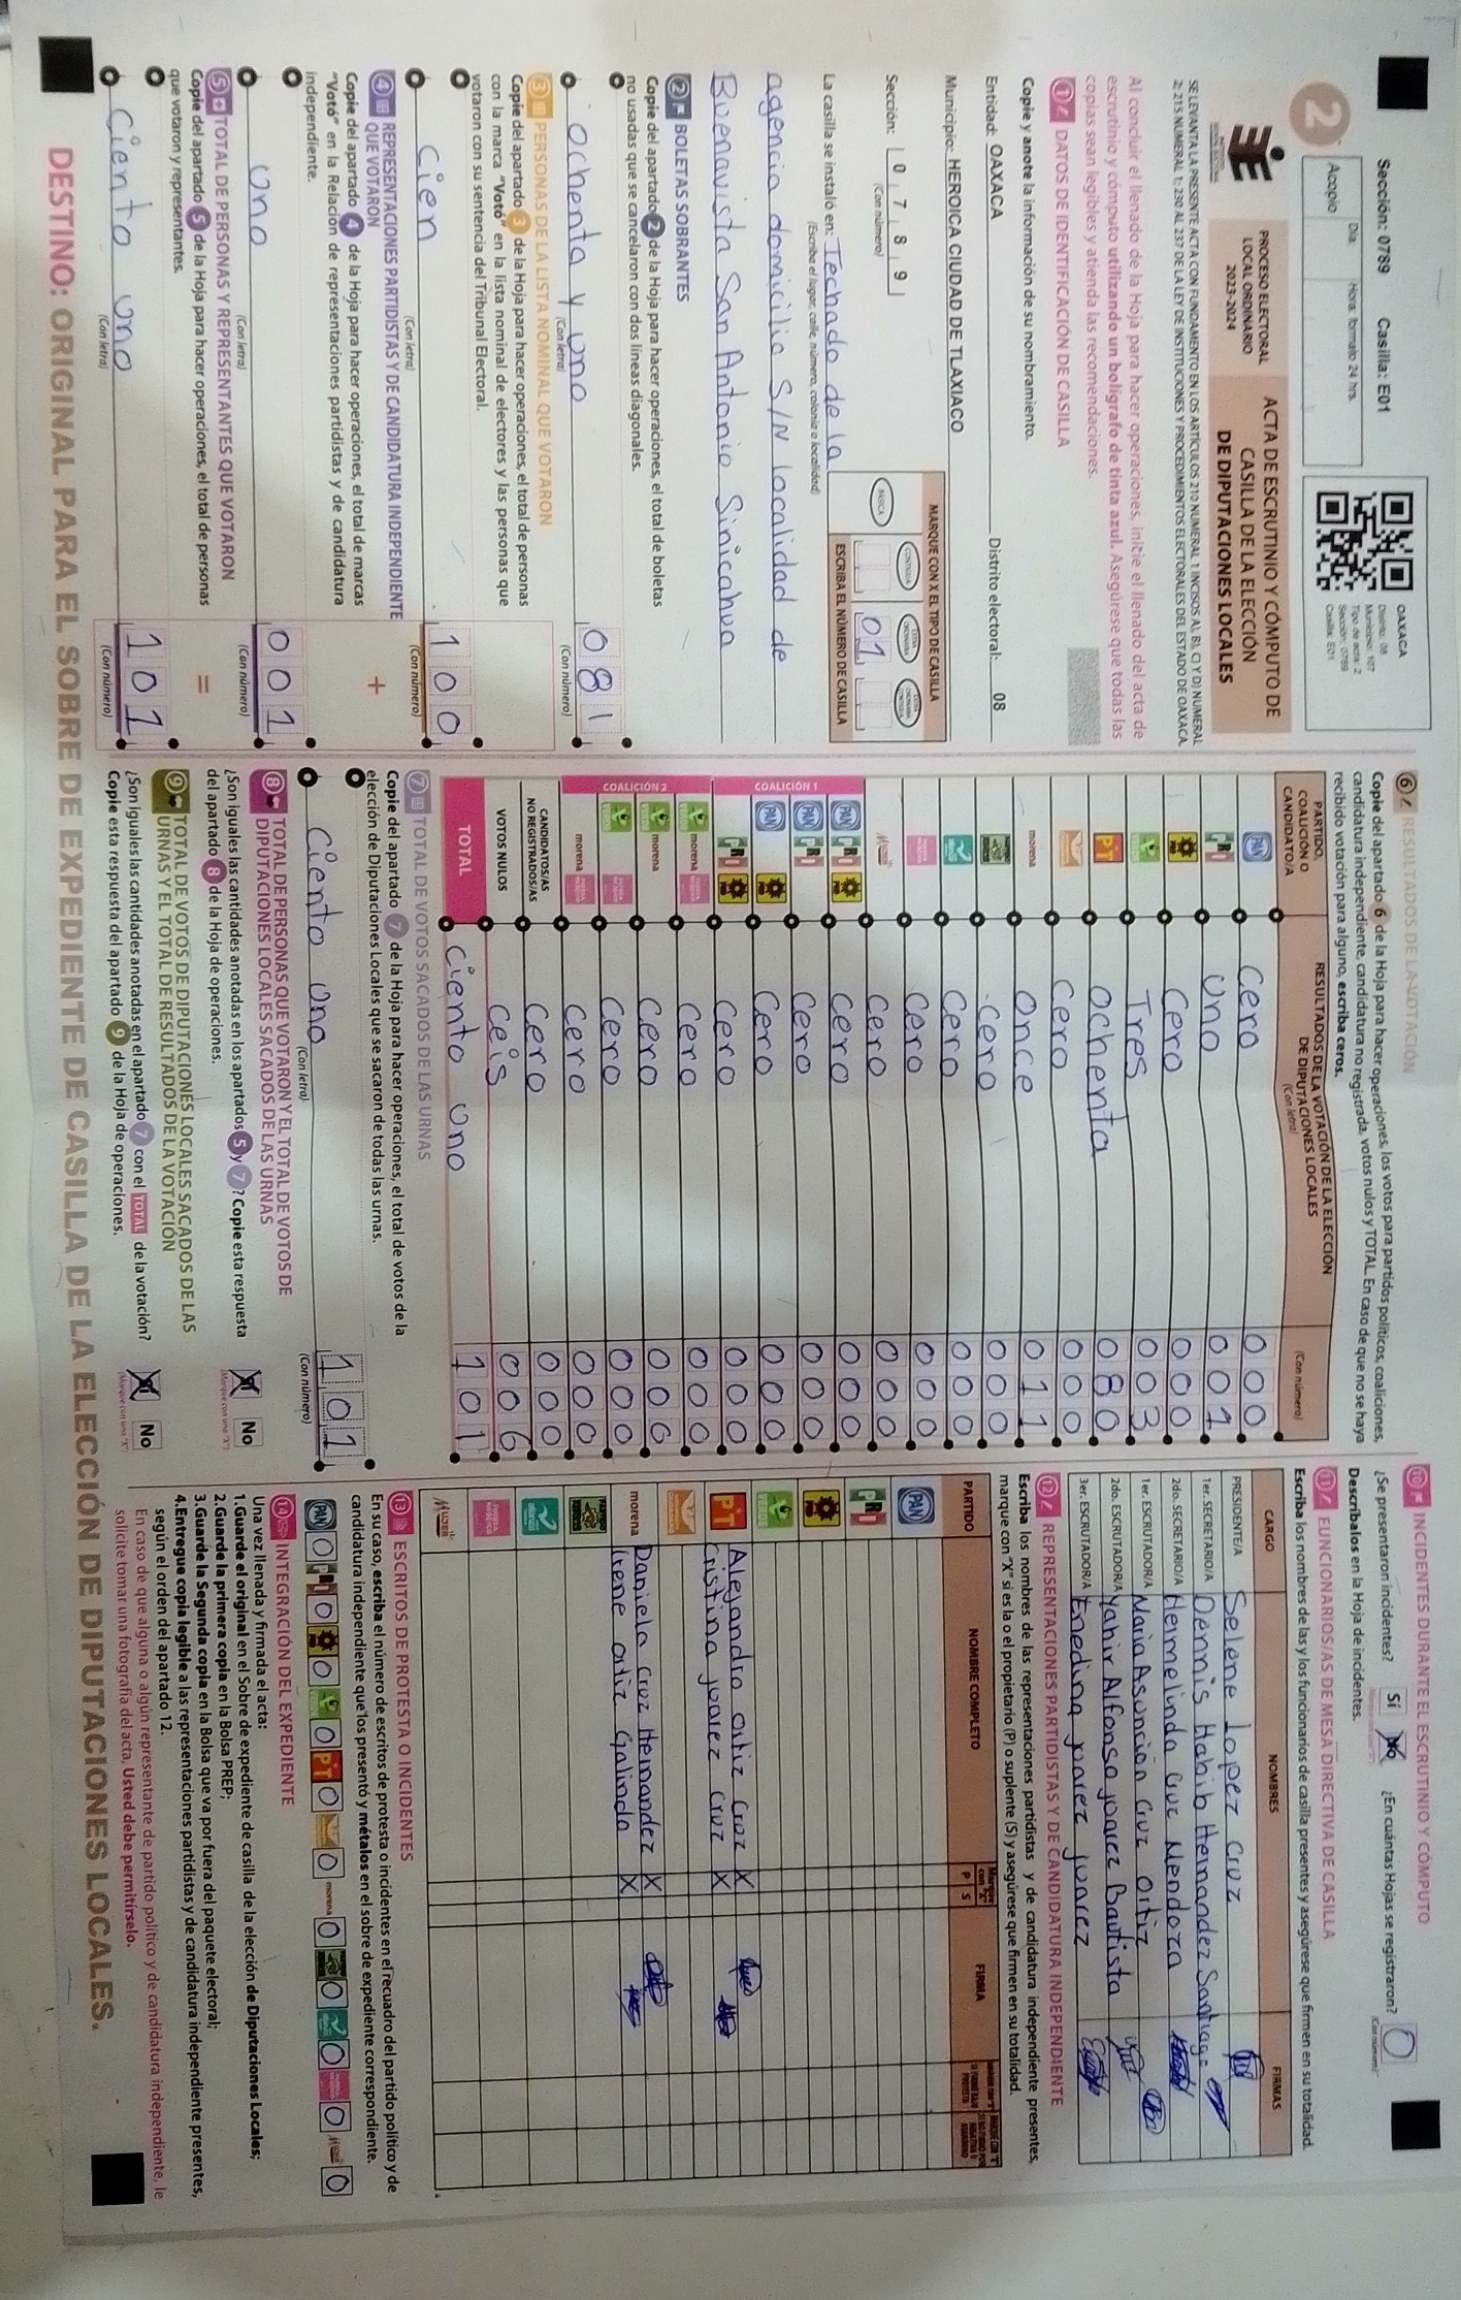 Sección: 0789 Casilla: E01
Día: Hora: formato 24 hrs.
Acopio
OAXACA
Distrito: 08
Municipio: 107
Tipo de acta: 2
Sección: 0789
Casilla: E01
2
PROCESO ELECTORAL
LOCAL ORDINARIO
2023-2024
ACTA DE ESCRUTINIO Y CÓMPUTO DE
CASILLA DE LA ELECCIÓN
DE DIPUTACIONES LOCALES
SE LEVANTA LA PRESENTE ACTA CON FUNDAMENTO EN LOS ARTÍCULOS 210 NUMERAL 1 INCISOS A), B), C) Y D) NUMERAL
2; 215 NUMERAL 1; 230 AL 237 DE LA LEY DE INSTITUCIONES Y PROCEDIMIENTOS ELECTORALES DEL ESTADO DE OAXACA.
Al concluir el llenado de la Hoja para hacer operaciones, inicie el llenado del acta de
escrutinio y cómputo utilizando un bolígrafo de tinta azul. Asegúrese que todas las
copias sean legibles y atienda las recomendaciones.
1 DATOS DE IDENTIFICACIÓN DE CASILLA
Copie y anote la información de su nombramiento.
Entidad: OAXACA Distrito electoral: 08
Municipio: HEROICA CIUDAD DE TLAXIACO
Sección: 0 7 8 9
(Con número)
MARQUE CON X EL TIPO DE CASILLA
BÁSICA CONTIGUA
01
ESCRIBA EL NÚMERO DE CASILLA
La casilla se instaló en: Techado de la
(Escriba el lugar, calle, número, colonia o localidad)
agencia domicilio S/N localidad de
Buenavista San Antonio Sinicahua
2 BOLETAS SOBRANTES
Copie del apartado 2 de la Hoja para hacer operaciones, el total de boletas
no usadas que se cancelaron con dos líneas diagonales.
ochenta y uno 081
(Con letra) (Con número)
3 PERSONAS DE LA LISTA NOMINAL QUE VOTARON
Copie del apartado 3 de la Hoja para hacer operaciones, el total de personas
con la marca "Votó" en la lista nominal de electores y las personas que
votaron con su sentencia del Tribunal Electoral.
Cien 100
(Con letra) (Con número)
4 REPRESENTACIONES PARTIDISTAS Y DE CANDIDATURA INDEPENDIENTE
QUE VOTARON +
Copie del apartado 4 de la Hoja para hacer operaciones, el total de marcas
"Votó" en la Relación de representaciones partidistas y de candidatura
independiente.
Uno 001
(Con letra) (Con número)
5 TOTAL DE PERSONAS Y REPRESENTANTES QUE VOTARON
Copie del apartado 5 de la Hoja para hacer operaciones, el total de personas
que votaron y representantes. =
Ciento uno 101
(Con letra) (Con número)
6 RESULTADOS DE LA VOTACIÓN
Copie del apartado 6 de la Hoja para hacer operaciones, los votos para partidos políticos, coaliciones,
candidatura independiente, candidatura no registrada, votos nulos y TOTAL. En caso de que no se haya
recibido votación para alguno, escriba ceros.
PARTIDO,
COALICIÓN O
CANDIDATO/A
RESULTADOS DE LA VOTACIÓN DE LA ELECCIÓN
DE DIPUTACIONES LOCALES
(Con letra) (Con número)
PAN Cero 000
PRI Uno 001
PRD Cero 000
VERDE Tres 003
PT Ochenta 080
Cero 000
morena Once 011
cero 000
Cero 000
Cero 000
MUJER Cero 000
COALICIÓN 1
PAN PRI PRD Cero 000
PAN PRI Cero 000
PAN PRD Cero 000
PRI PRD Cero 000
COALICIÓN 2
VERDE morena Cero 000
VERDE morena Cero 000
VERDE Cero 000
morena Cero 000
CANDIDATOS/AS
NO REGISTRADOS/AS Cero 000
VOTOS NULOS Ceis 006
TOTAL Ciento Uno 101
7 TOTAL DE VOTOS SACADOS DE LAS URNAS
Copie del apartado 7 de la Hoja para hacer operaciones, el total de votos de la
elección de Diputaciones Locales que se sacaron de todas las urnas.
Ciento uno 101
(Con letra) (Con número)
8 TOTAL DE PERSONAS QUE VOTARON Y EL TOTAL DE VOTOS DE
DIPUTACIONES LOCALES SACADOS DE LAS URNAS
¿Son iguales las cantidades anotadas en los apartados 5 y 7? Copie esta respuesta
del apartado 8 de la Hoja de operaciones. Sí No
9 TOTAL DE VOTOS DE DIPUTACIONES LOCALES SACADOS DE LAS
URNAS Y EL TOTAL DE RESULTADOS DE LA VOTACIÓN
¿Son iguales las cantidades anotadas en el apartado 7 con el TOTAL de la votación?
Copie esta respuesta del apartado 9 de la Hoja de operaciones. Sí No
10 INCIDENTES DURANTE EL ESCRUTINIO Y CÓMPUTO
¿Se presentaron incidentes? Sí No ¿En cuántas Hojas se registraron? 0
Descríbalos en la Hoja de incidentes.
11 FUNCIONARIOS/AS DE MESA DIRECTIVA DE CASILLA
Escriba los nombres de las y los funcionarios de casilla presentes y asegúrese que firmen en su totalidad.
CARGO NOMBRES FIRMAS
PRESIDENTE/A Selene Lopez Cruz
1er. SECRETARIO/A Dennis Habib Hernandez Santiago
2do. SECRETARIO/A Hermelinda Cruz Mendoza
1er. ESCRUTADOR/A Maria Asunción Cruz Ortiz
2do. ESCRUTADOR/A Yahir Alfonso juarez Bautista
3er. ESCRUTADOR/A Enedina juarez juarez
12 REPRESENTACIONES PARTIDISTAS Y DE CANDIDATURA INDEPENDIENTE
Escriba los nombres de las representaciones partidistas y de candidatura independiente presentes,
marque con "X" si es la o el propietario (P) o suplente (S) y asegúrese que firmen en su totalidad.
PARTIDO NOMBRE COMPLETO P S FIRMA
PAN
PRI
PRD
VERDE
PT Alejandro Ortiz Cruz X
Cristina juarez Cruz X
morena Daniela Cruz Hernandez X
Irene Ortiz Galindo X
MUJER
13 ESCRITOS DE PROTESTA O INCIDENTES
En su caso, escriba el número de escritos de protesta o incidentes en el recuadro del partido político y de
candidatura independiente que los presentó y métalos en el sobre de expediente correspondiente.
PAN 0 PRI 0 PRD 0 VERDE 0 PT 0 0 morena 0 0 0 0 MUJER 0
14 INTEGRACIÓN DEL EXPEDIENTE
Una vez llenada y firmada el acta:
1.Guarde el original en el Sobre de expediente de casilla de la elección de Diputaciones Locales;
2.Guarde la primera copia en la Bolsa PREP;
3.Guarde la Segunda copia en la Bolsa que va por fuera del paquete electoral;
4.Entregue copia legible a las representaciones partidistas y de candidatura independiente presentes,
según el orden del apartado 12.
En caso de que alguna o algún representante de partido político y de candidatura independiente, le
solicite tomar una fotografía del acta, Usted debe permitírselo.
DESTINO: ORIGINAL PARA EL SOBRE DE EXPEDIENTE DE CASILLA DE LA ELECCIÓN DE DIPUTACIONES LOCALES.